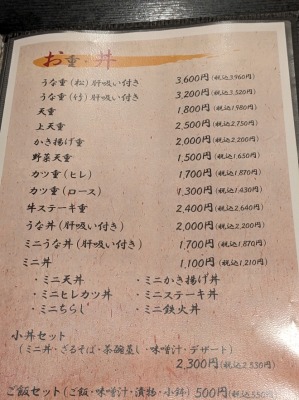 お重・丼
うな重(松)肝吸い付き 3,600円(税込3,960円)
うな重(竹)肝吸い付き 3,200円(税込3,520円)
天重 1,800円(税込1,980円)
上天重 2,500円(税込2,750円)
かき揚げ重 2,000円(税込2,200円)
野菜天重 1,500円(税込1,650円)
カツ重(ヒレ) 1,700円(税込1,870円)
カツ重(ロース) 1,300円(税込1,430円)
牛ステーキ重 2,400円(税込2,640円)
うな丼(肝吸い付き) 2,000円(税込2,200円)
ミニうな丼(肝吸い付き) 1,700円(税込1,870円)
ミニ丼 1,100円(税込1,210円)
・ミニ天丼 ・ミニかき揚げ丼
・ミニヒレカツ丼 ・ミニステーキ丼
・ミニちらし ・ミニ鉄火丼
小丼セット
(ミニ丼・ざるそば・茶碗蒸し・味噌汁・デザート)
2,300円(税込2,530円)
ご飯セット(ご飯・味噌汁・漬物・小鉢) 500円(税込550円)